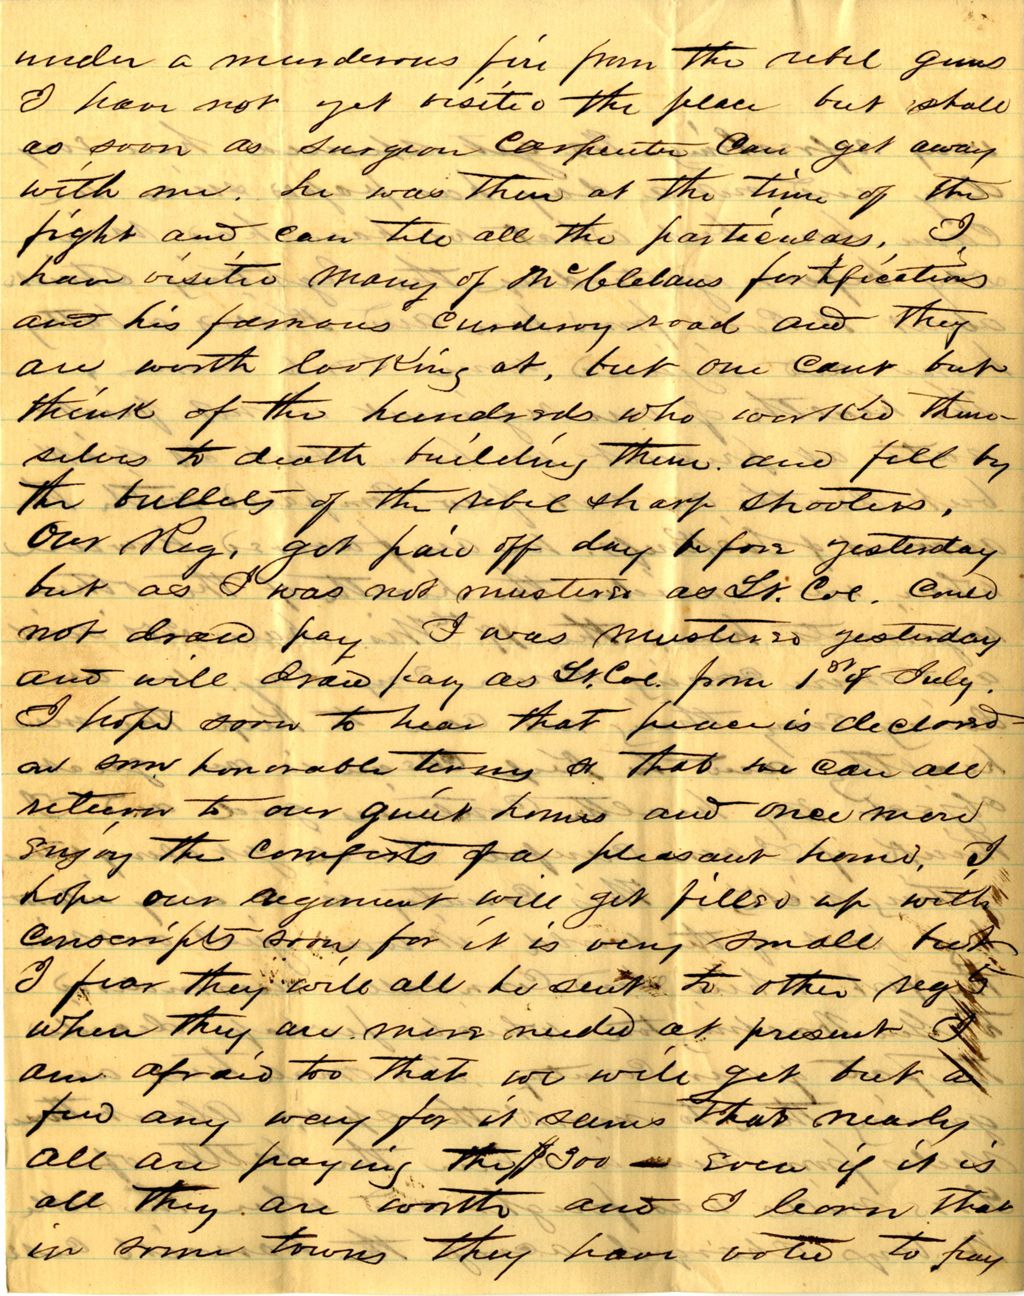 under a murderous fire from the rebel guns
I have not yet visited the place but shall
as soon as Surgeon Carpenter can get away
with me. he was there at the time of the
fight and can tell all the particulars. I
have visited many of McClelans fortifications
and his famous curderoy road and they
are worth looking at, but one cant but
think of the hundreds who worked them-
selves to death building them and fell by
the bullets of the rebel sharp shooters.
Our Reg. got paid off day before yesterday
but as I was not mustered as Lt. Col. could
not draw pay I was mustered yesterday
and will draw pay as Lt. Col. from 1st of July.
I hope soon to hear that peace is declared
on some honorable terms so that we can all
return to our quiet homes and once more
enjoy the comforts of a pleasant home. I
hope our regiment will get filled up with
conscripts soon for it is very small but
I fear they will all be sent to other regs
where they are more needed at present I
am afraid too that we will get but a
few any way for it seems that nearly
all are paying the $300 — even if it is
all they are worth and I learn that
in some towns they have voted to pay